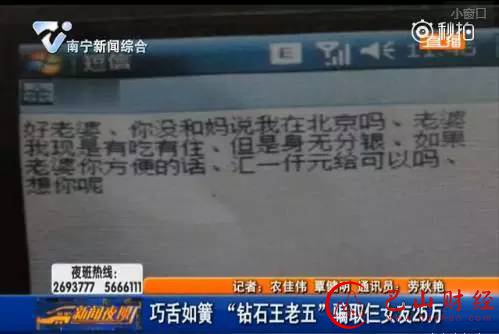 小窗口
秒拍
直播
南宁新闻综合
短信
E
好老婆、你没和妈说我在北京吗、老婆
我现是有吃有住、但是身无分银、如果
老婆你方便的话、汇一仟元给可以吗、
想你呢
夜班热线:
2693777 5666111
记者: 农佳伟 覃健朗 通讯员: 劳秋艳
新闻夜班
巧舌如簧 “钻石王老五”骗取仨女友25万
名山财经